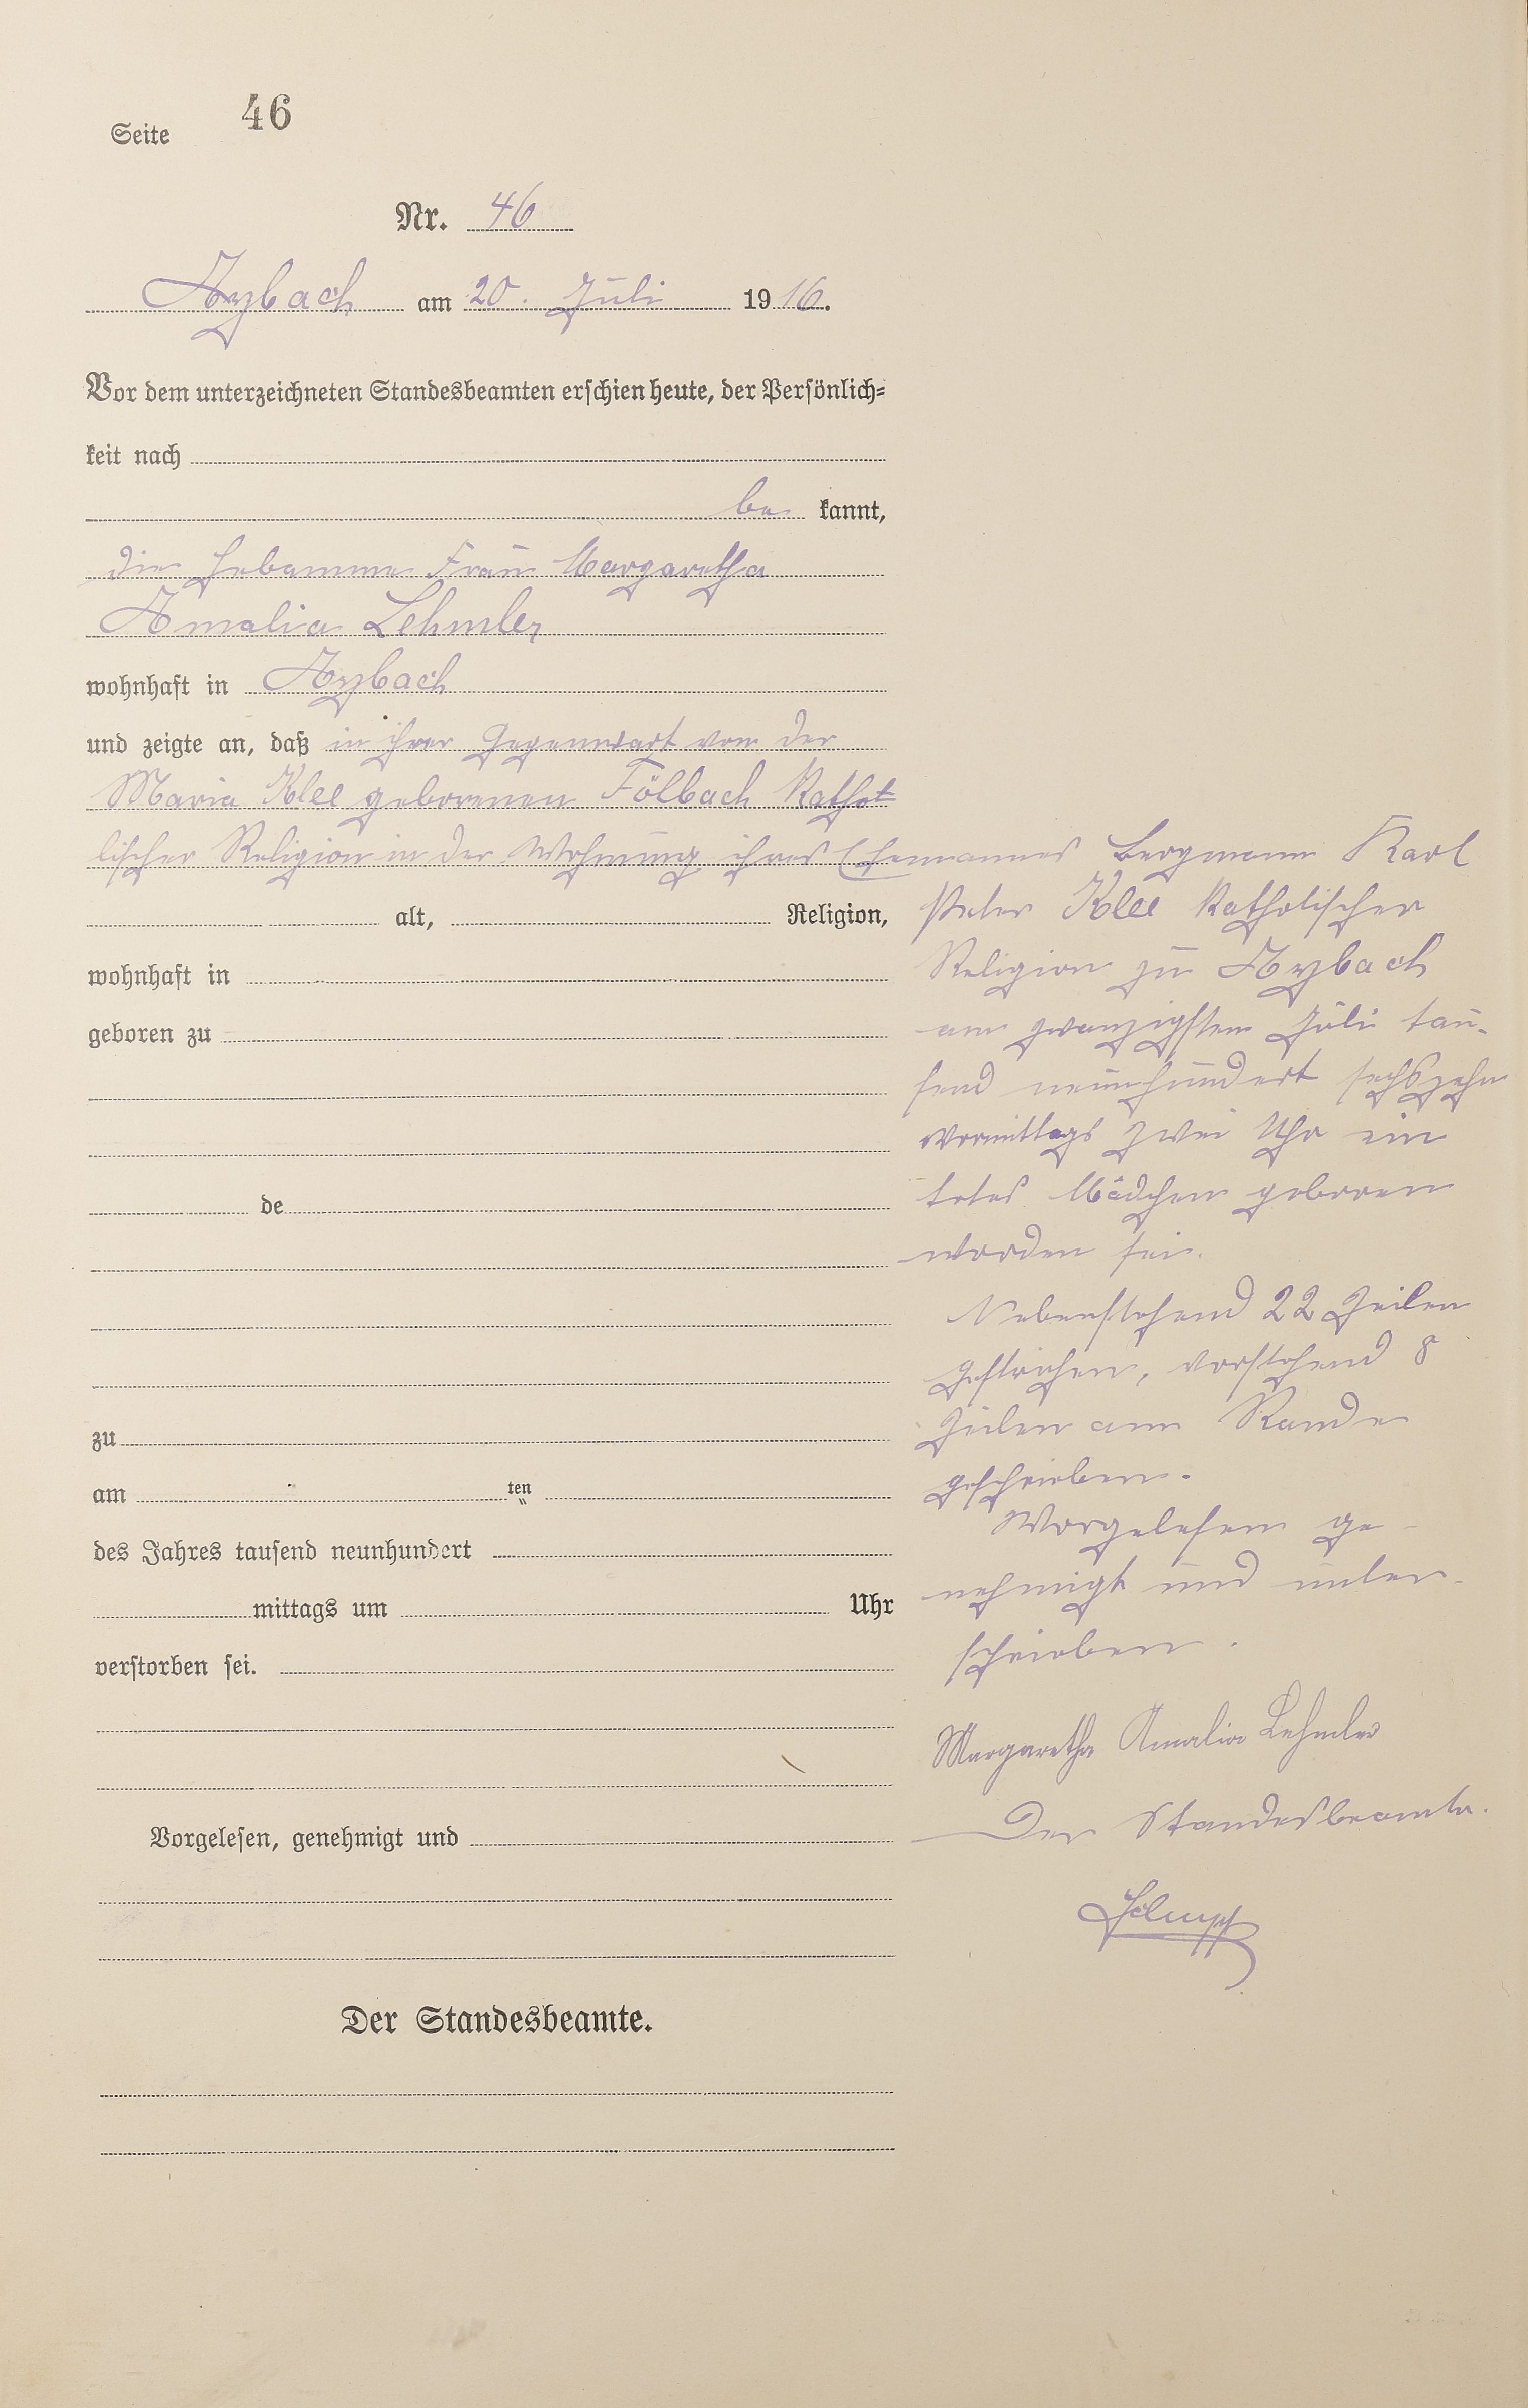 Seite 46
Nr. 46
Arzbach am 20. Juli 1916.
Vor dem unterzeichneten Standesbeamten erschien heute, der Persönlich-
keit nach
be kannt,
die Hebamme Frau Margaretha
Amalia Lehmler
wohnhaft in Arzbach
und zeigte an, daß in ihrer Gegenwart von der
Maria Klee geborenen Fölbach Katho-
lischer Religion in der Wohnung ihres Ehemannes Bergmann Karl
alt, Religion, Peter Klee Katholischer
wohnhaft in Religion zu Arzbach
geboren zu am zwanzigsten Juli tau-
send neunhundert sechszehn
Vormittags zwei Uhr ein
de totes Mädchen geboren
worden sei.
Nebenstehend 22 Zeilen
gestrichen, vorstehend 8
zu Zeilen am Rande
am ten geschrieben.
des Jahres tausend neunhundert Vorgelesen ge-
mittags um Uhr nehmigt und unter-
verstorben sei. schrieben.
Margaretha Amalia Lehmler
Vorgelesen, genehmigt und Der Standesbeamte.
Der Standesbeamte.